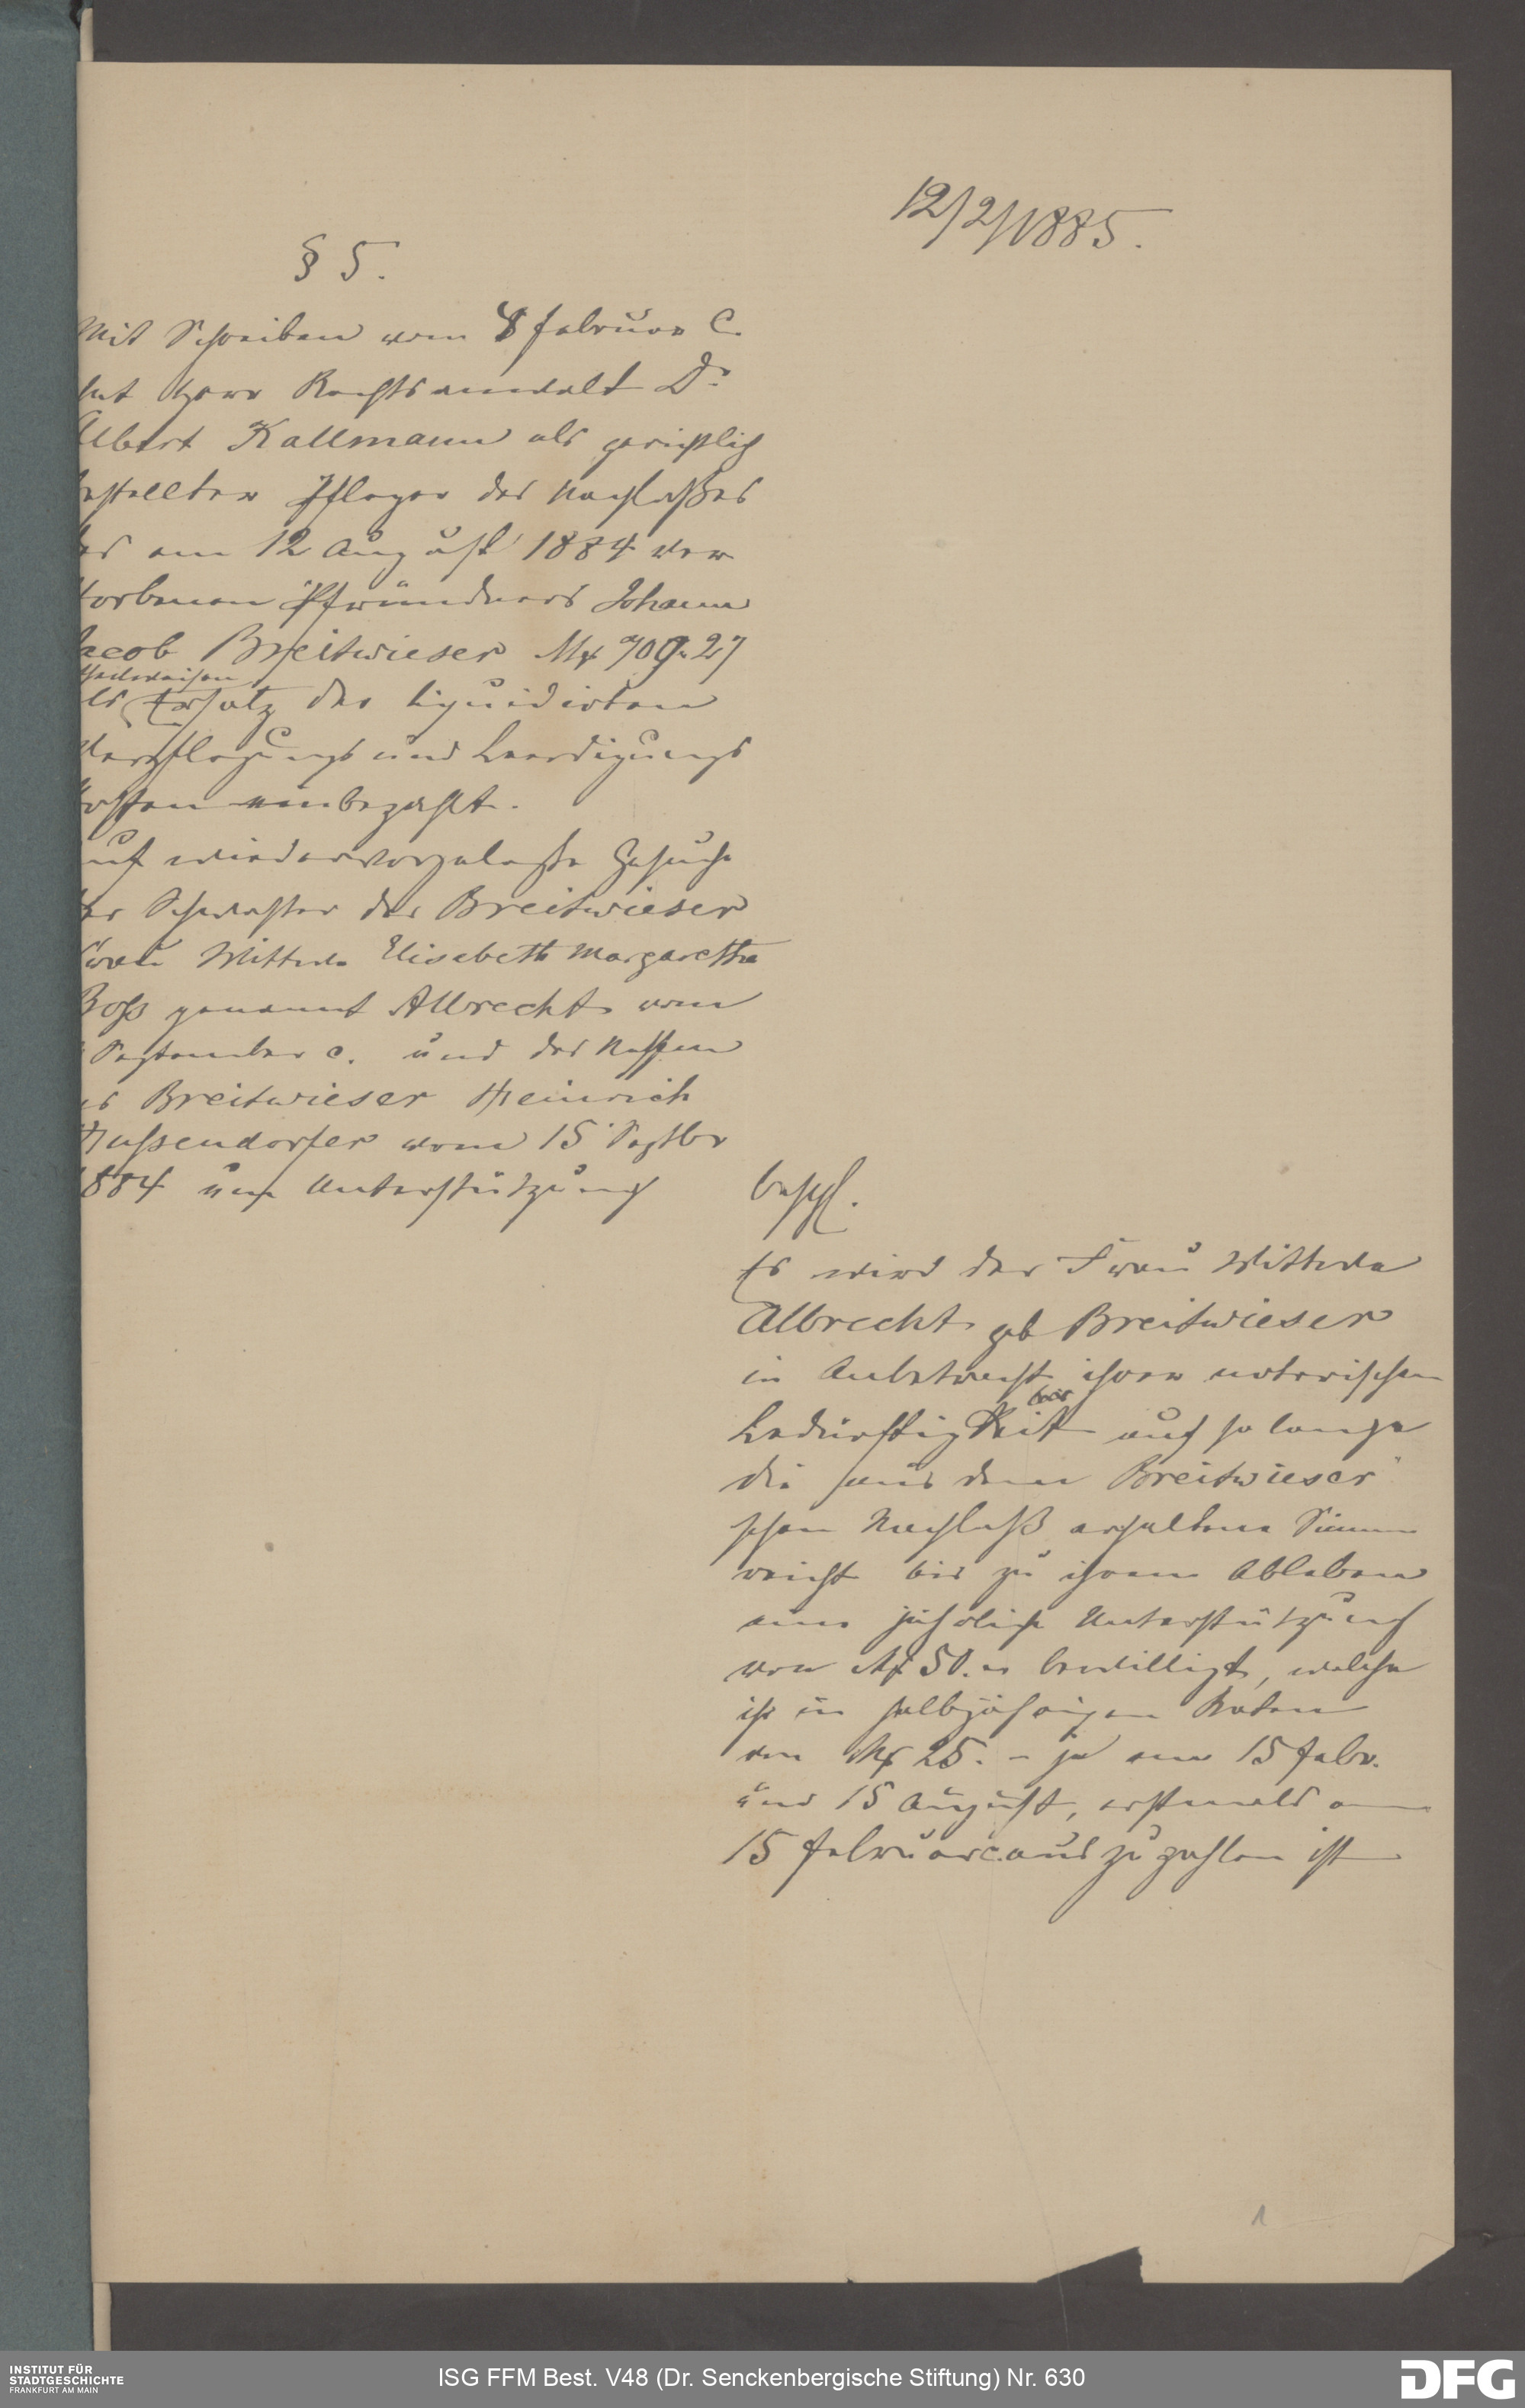 12/2/1885.
§ 5.
Mit Schreiben vom 8 Februar c.
hat Herr Rechtsanwalt Dr
Albert Kallmann als gerichtlich
bestellter Pfleger des Nachlaßes
des am 12 August 1884 ver
storbenen Pfründners Johann
Jacob Breitwieser M 709.27
theilweisen
als Ersatz der liquidirten
Verpflegungs und Beerdigungs
kosten einbezahlt.
Auf wiedervorgelegte Gesuche
der Schwester des Breitwieser
Frau Wittwe Elisabeth Margaretha
Boss genannt Albrecht vom
September c. und des Neffen
des Breitwieser Heinrich
Hussendorfer vom 15 Septbr
1884 um Unterstützung
beschl.
Es wird der Frau Wittwe
Albrecht geb Breitwieser
in Anbetracht ihrer notorischen
Bedürftigkeit auf so lange
die aus dem Breitwieser"
schen Nachlaß erhaltene Summe
reicht bis zu ihrem Ableben
eine jährliche Unterstützung
von M 50. – bewilligt, welche
ihr in halbjährigen Raten
von M 25. – je am 15 Febr.
und 15 August, erstmals am
15 Februar c. auszuzahlen ist
1
INSTITUT FÜR
STADTGESCHICHTE
FRANKFURT AM MAIN
ISG FFM Best. V48 (Dr. Senckenbergische Stiftung) Nr. 630
DFG